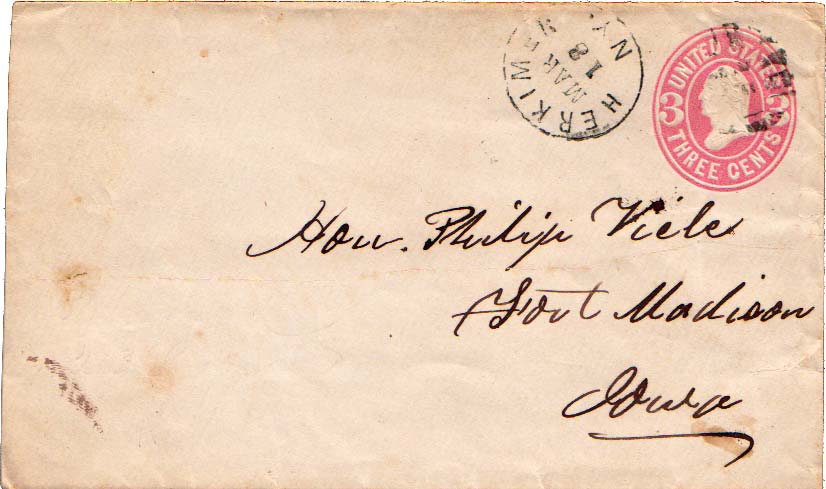 HERKIMER N.Y.
MAR
18
UNITED STATES
3 3
THREE CENTS
Hon. Philip Viele
Fort Madison
Iowa